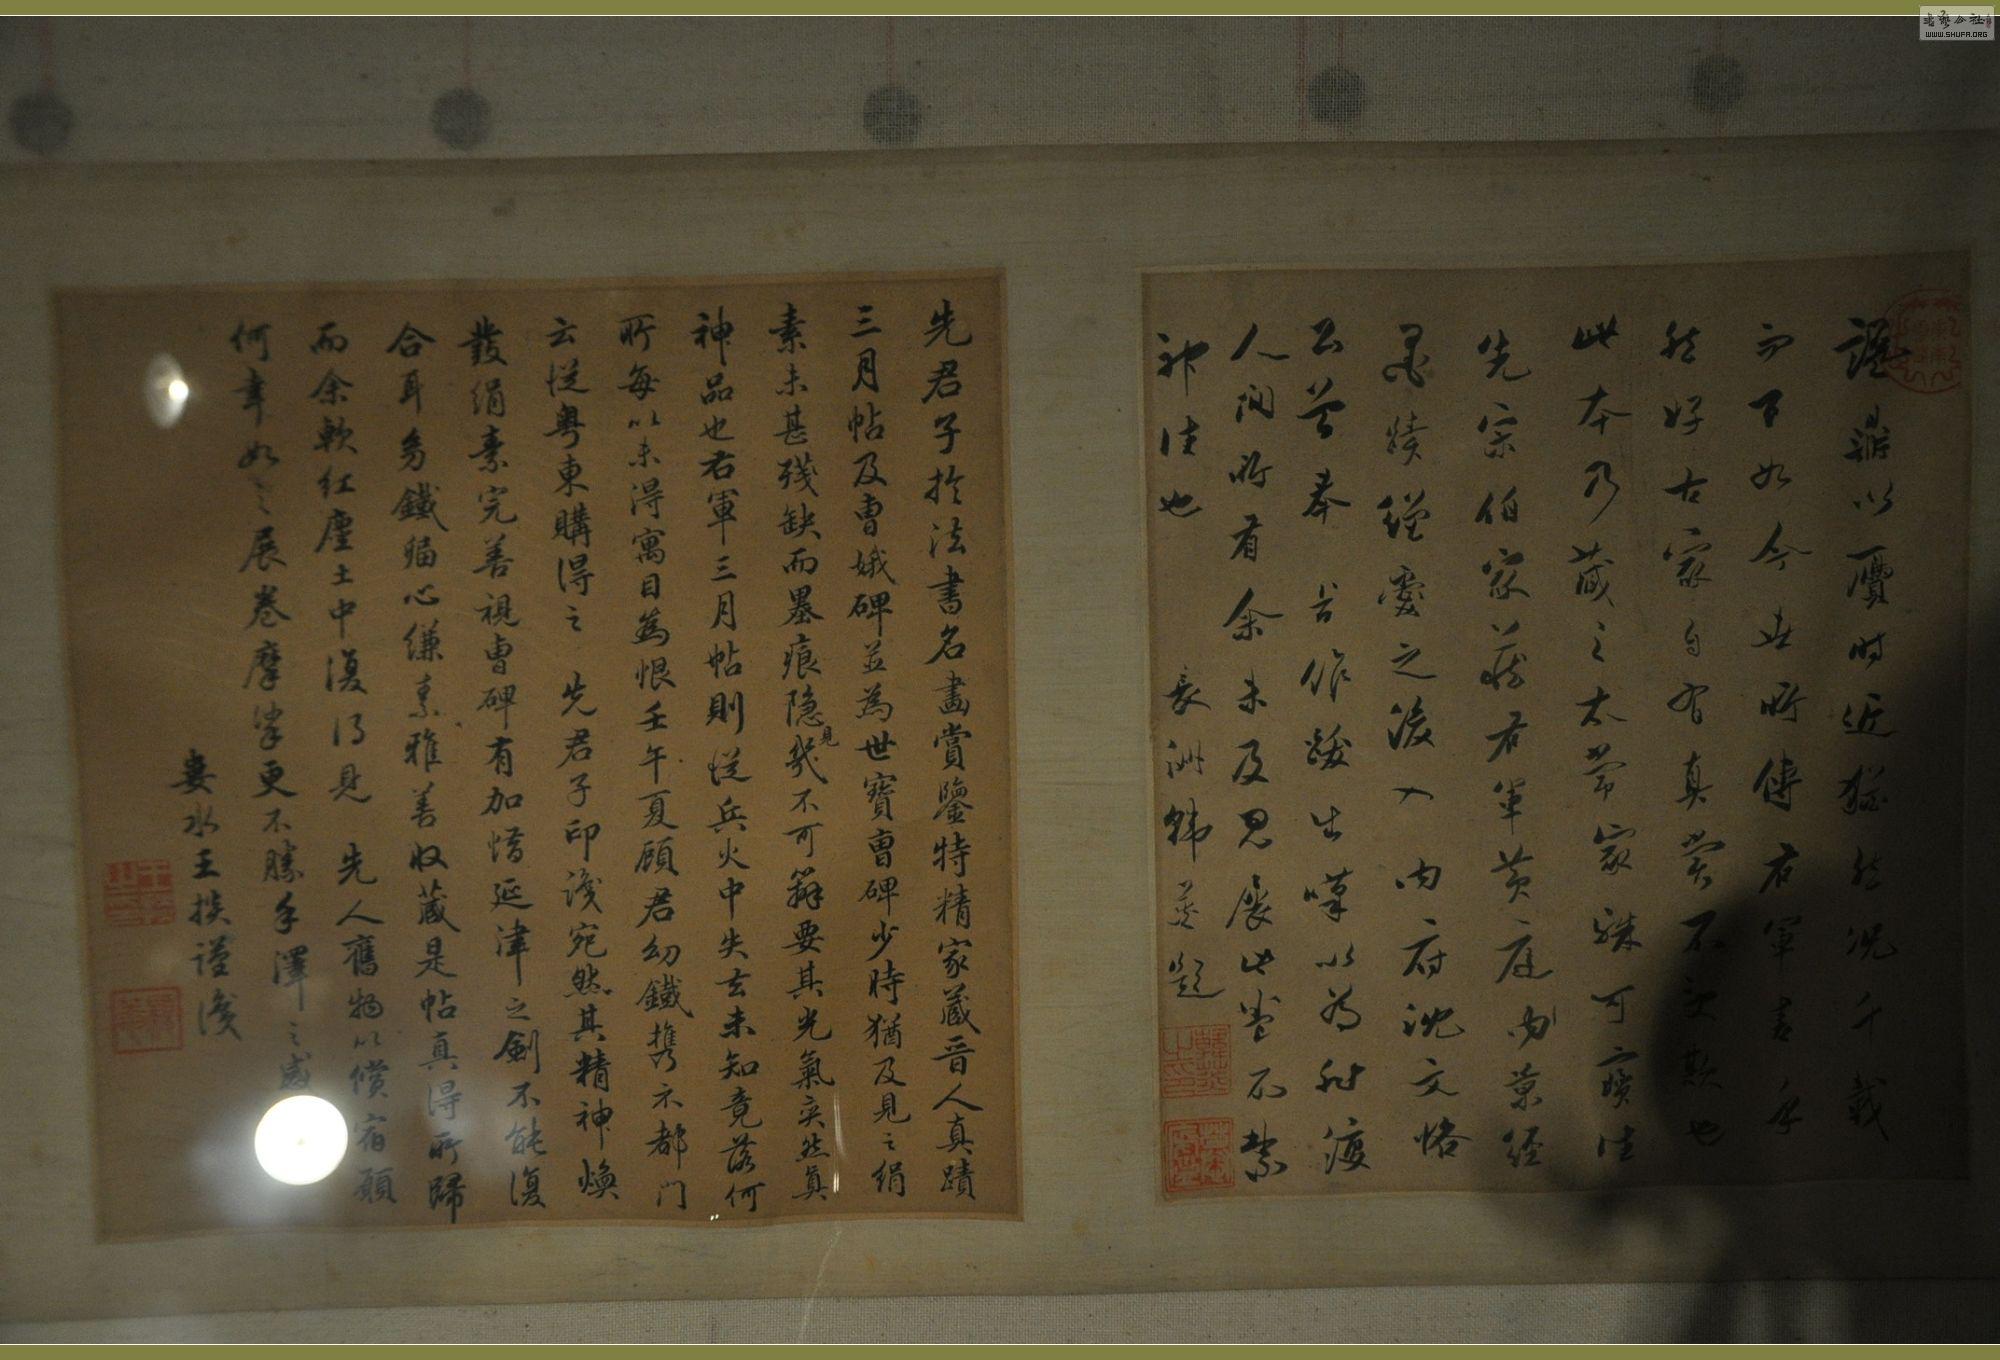 讝鼎以贗时近猶然况千載
而下如今世所傳右軍書乎
然好古家自有真賞不敢欺也
此本乃藏之太常家殊可寶往
先宗伯家藏右軍黄庭内景經
墨蹟繼愛之後入内府沈文恪
公昔奉旨作跋生嘆以為神渡
人间所有余未及思展此卷不禁
神往也
長洲韩菼題
先君子於法書名畵賞鑒特精家藏晋人真蹟
三月帖及曹娥碑並為世寶曹碑少時猶及見之絹
素未甚殘缺而墨痕隐見幾不可辨要其光氣奕然真
神品也右軍三月帖則從兵火中失去未知竟落何
所每以未得寓目為恨壬午夏顾君幼鐵攜示都门
云從粤東購得之先君子印識宛然其精神煥
發絹素完善視曹碑有加惜延津之劍不能復
合耳多鐵貓心縑素雅善收藏是帖真得所歸
而余軟红塵土中復得見先人舊物以償宿願
何幸如之展卷摩挲更不勝手澤之感
婁水王掞谨識
WWW.SHUFA.ORG